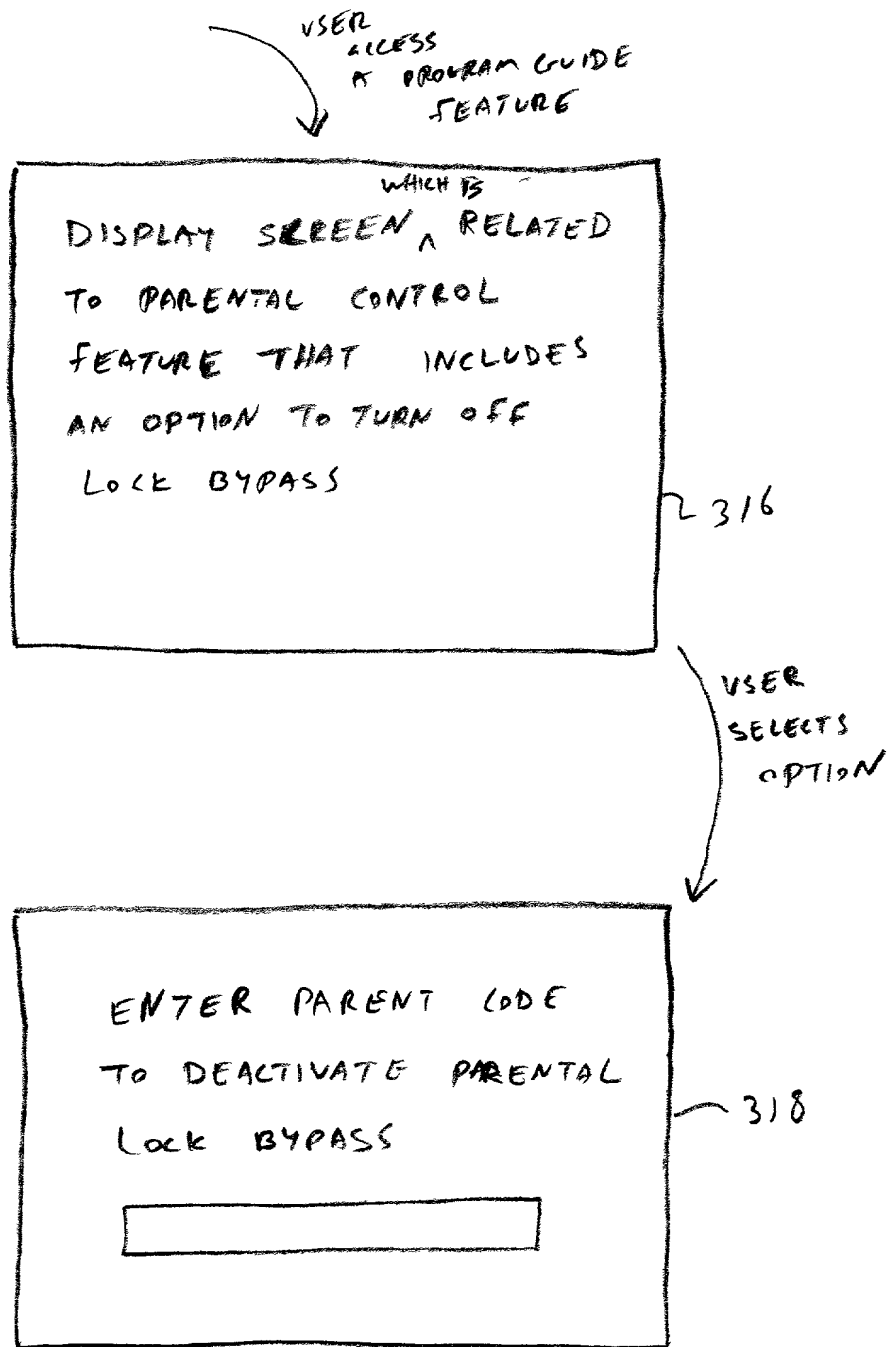 USER
ACCESS
A PROGRAM GUIDE
FEATURE
WHICH IS
DISPLAY SCREEN ^ RELATED
TO PARENTAL CONTROL
FEATURE THAT INCLUDES
AN OPTION TO TURN OFF
LOCK BYPASS
316
USER
SELECTS
OPTION
ENTER PARENT CODE
TO DEACTIVATE PARENTAL
LOCK BYPASS
318